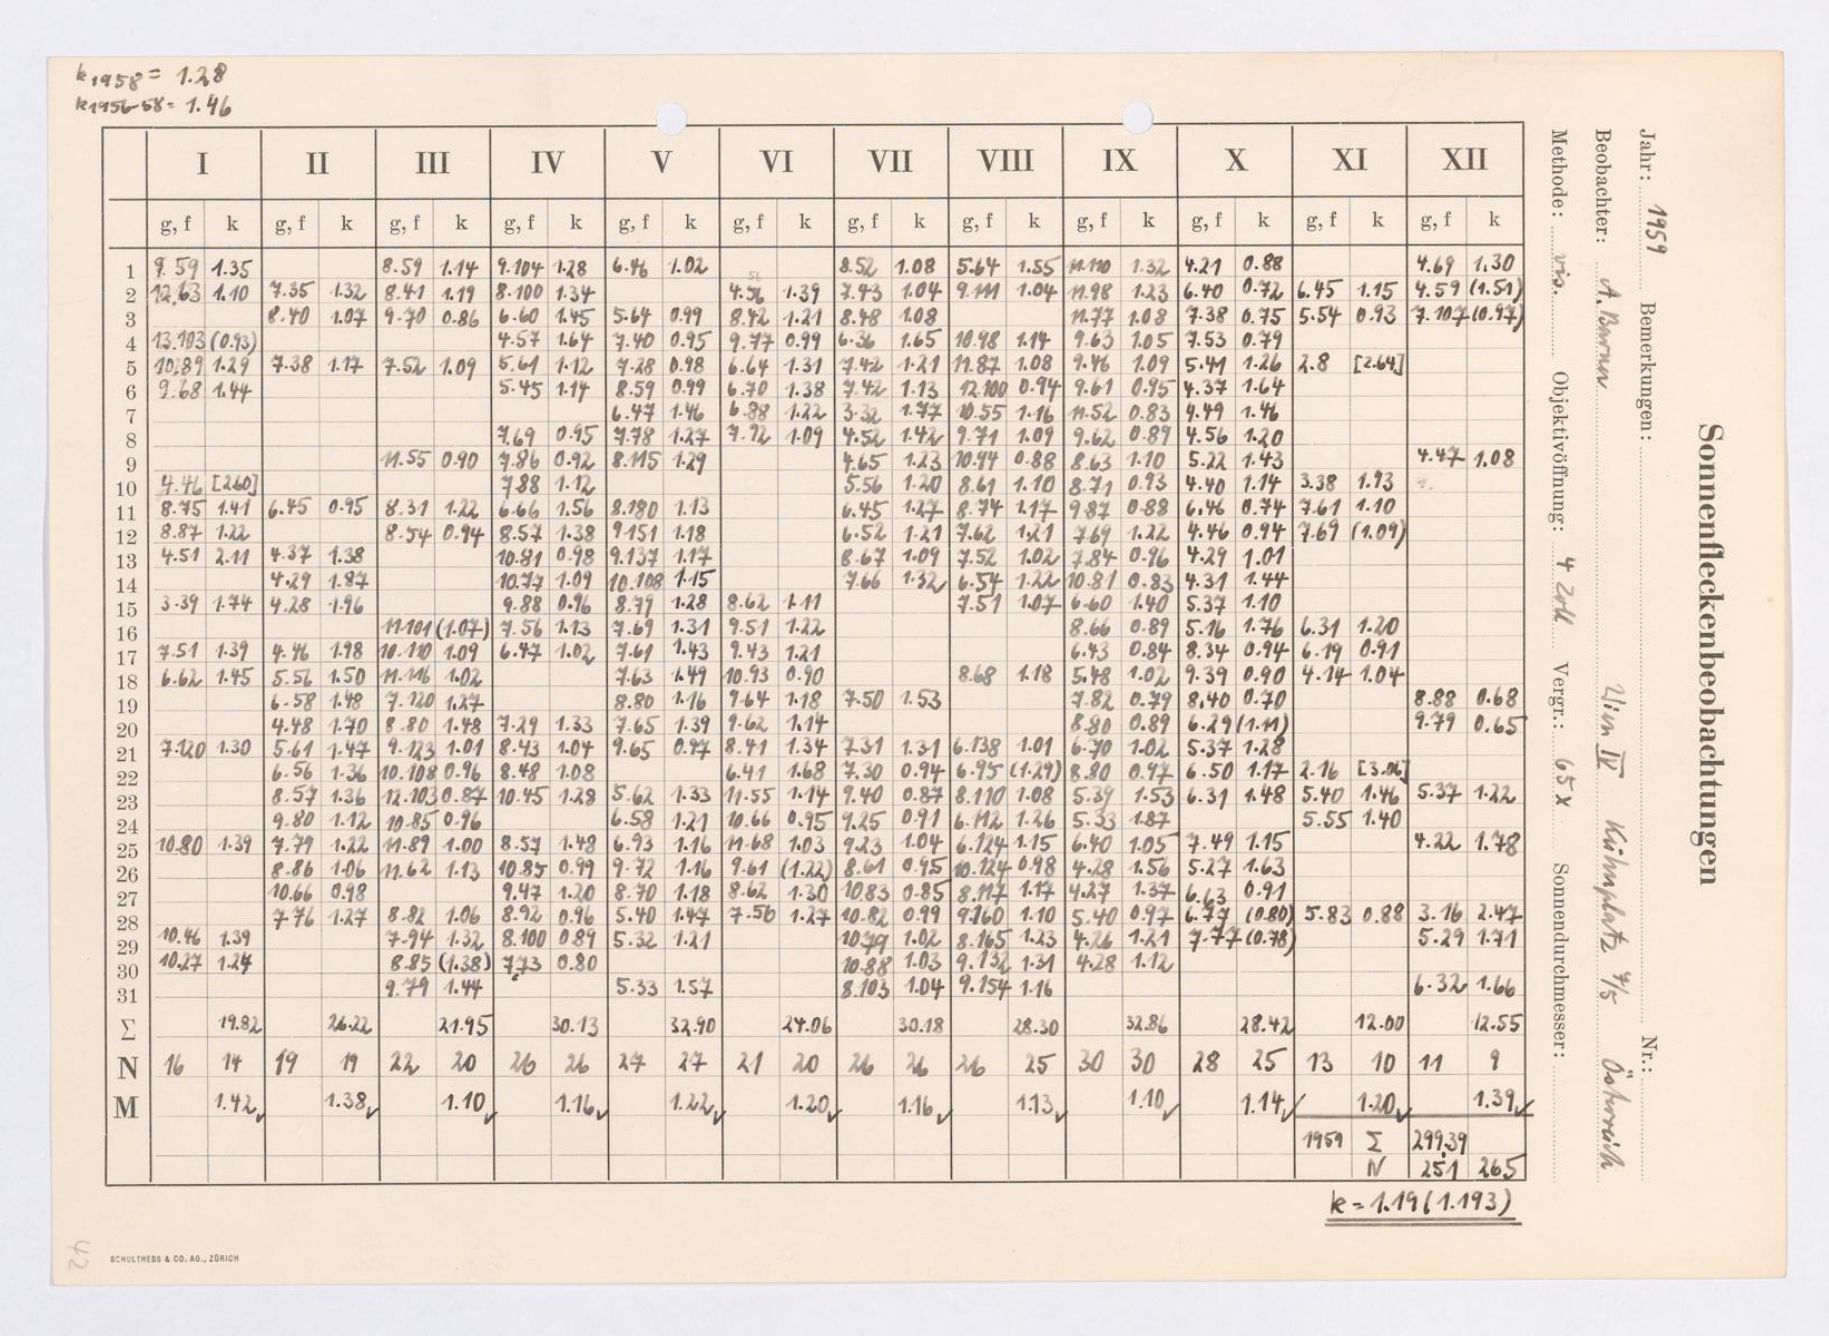 k1958 = 1.28
k1956-58 = 1.46
I II III IV V VI VII VIII IX X XI XII
g, f k g, f k g, f k g, f k g, f k g, f k g, f k g, f k g, f k g, f k g, f k g, f k
1 9.59 1.35 8.59 1.14 9.104 1.28 6.76 1.02 8.52 1.08 5.64 1.55 11.110 1.32 4.21 0.88 4.69 1.30
2 12.63 1.10 7.35 1.32 8.41 1.19 8.100 1.34 4.56 1.39 7.43 1.04 9.111 1.04 11.98 1.23 6.40 0.72 6.45 1.15 4.59 (1.51)
3 8.40 1.07 9.70 0.86 6.60 1.45 5.64 0.99 8.42 1.21 8.48 1.08 11.77 1.08 7.38 0.75 5.54 0.93 7.107 (0.97)
4 13.103 (0.93) 4.57 1.64 7.40 0.95 9.77 0.99 6.36 1.65 10.98 1.14 9.63 1.05 7.53 0.79
5 10.89 1.29 7.38 1.17 7.52 1.09 5.61 1.12 7.28 0.98 6.64 1.31 7.42 1.21 11.87 1.08 9.46 1.09 5.41 1.26 2.8 [2.64]
6 9.68 1.44 5.45 1.14 8.59 0.99 6.70 1.38 7.42 1.13 12.100 0.94 9.61 0.95 4.37 1.64
7 6.47 1.46 6.88 1.22 3.32 1.77 10.55 1.16 11.52 0.83 4.49 1.46
8 7.69 0.95 7.78 1.27 7.92 1.09 4.52 1.42 9.71 1.09 9.62 0.89 4.56 1.20
9 11.55 0.90 7.86 0.92 8.115 1.29 4.65 1.23 10.94 0.88 8.63 1.10 5.22 1.43 4.47 1.08
10 4.46 [2.60] 7.88 1.12 5.56 1.20 8.61 1.10 8.71 0.93 4.40 1.14 3.38 1.93
11 8.75 1.41 6.45 0.95 8.31 1.22 6.66 1.56 8.180 1.13 6.45 1.27 8.74 1.17 9.87 0.88 6.46 0.74 7.61 1.10
12 8.87 1.22 8.54 0.94 8.57 1.38 9.151 1.18 6.52 1.21 7.62 1.21 7.69 1.22 4.46 0.94 7.69 (1.09)
13 4.51 2.11 4.37 1.38 10.81 0.98 9.137 1.17 8.67 1.09 7.52 1.02 7.84 0.96 4.29 1.01
14 4.29 1.87 10.77 1.09 10.108 1.15 7.66 1.32 6.54 1.22 10.81 0.83 4.31 1.44
15 3.39 1.74 4.28 1.96 9.88 0.96 8.79 1.28 8.62 1.11 7.51 1.07 6.60 1.40 5.37 1.10
16 11.101 (1.07) 7.56 1.13 7.69 1.31 9.51 1.22 8.66 0.89 5.16 1.76 6.31 1.20
17 7.51 1.39 4.46 1.98 10.110 1.09 6.47 1.02 7.61 1.43 9.43 1.21 6.43 0.84 8.34 0.94 6.19 0.91
18 6.62 1.45 5.56 1.50 11.116 1.02 7.63 1.49 10.93 0.90 8.68 1.18 5.48 1.02 9.39 0.90 4.14 1.04
19 6.58 1.48 7.120 1.27 8.80 1.16 9.64 1.18 7.50 1.53 7.82 0.79 8.40 0.70 8.88 0.68
20 4.48 1.70 8.80 1.48 7.29 1.33 7.65 1.39 9.62 1.14 8.80 0.89 6.29 (1.11) 9.79 0.65
21 7.120 1.30 5.61 1.47 9.123 1.01 8.43 1.04 9.65 0.97 8.41 1.34 7.31 1.31 6.138 1.01 6.70 1.02 5.37 1.28
22 6.56 1.36 10.108 0.96 8.48 1.08 6.41 1.68 7.30 0.94 6.95 (1.29) 8.80 0.97 6.50 1.17 2.16 [3.06]
23 8.57 1.36 12.103 0.87 10.45 1.28 5.62 1.33 11.55 1.14 9.40 0.87 8.110 1.08 5.39 1.53 6.31 1.48 5.40 1.46 5.37 1.22
24 9.80 1.12 10.85 0.96 6.58 1.21 10.66 0.95 9.25 0.91 6.112 1.26 5.33 1.87 5.55 1.40
25 10.80 1.39 7.79 1.22 11.89 1.00 8.57 1.48 6.93 1.16 11.68 1.03 9.23 1.04 6.124 1.15 6.40 1.05 7.49 1.15 4.22 1.78
26 8.86 1.06 11.62 1.13 10.85 0.99 9.72 1.16 9.61 (1.22) 8.61 0.95 10.124 0.98 4.28 1.56 5.27 1.63
27 10.66 0.98 9.47 1.20 8.70 1.18 8.62 1.30 10.83 0.85 8.117 1.17 4.27 1.37 6.63 0.91
28 7.76 1.27 8.82 1.06 8.92 0.96 5.40 1.47 7.56 1.27 10.82 0.99 9.160 1.10 5.40 0.97 6.77 (0.80) 5.83 0.88 3.16 2.47
29 10.46 1.39 7.94 1.32 8.100 0.89 5.32 1.21 10.79 1.02 8.165 1.23 4.26 1.21 7.77 (0.78) 5.29 1.71
30 10.27 1.24 8.85 (1.38) 7.73 0.80 10.88 1.03 9.132 1.31 4.28 1.12
31 9.79 1.44 5.33 1.57 8.103 1.04 9.154 1.16 6.32 1.66
Σ 19.82 26.22 21.95 30.13 32.90 24.06 30.18 28.30 32.86 28.42 12.00 12.55
N 16 14 19 19 22 20 26 26 27 27 21 20 26 26 26 25 30 30 28 25 13 10 11 9
M 1.42✓ 1.38✓ 1.10✓ 1.16✓ 1.22✓ 1.20✓ 1.16✓ 1.13✓ 1.10✓ 1.14✓ 1.20✓ 1.39✓
1959 Σ 299.39
N 251 265
k = 1.19 (1.193)
Sonnenfleckenbeobachtungen
Jahr: 1959 Bemerkungen: Nr.:
Beobachter: A. Ulm IV 7/5 Österreich
Methode: vis. Objektivöffnung: 4 Zoll Vergr.: 65 x Sonnendurchmesser:
42
SCHULTHESS & CO. AG., ZÜRICH